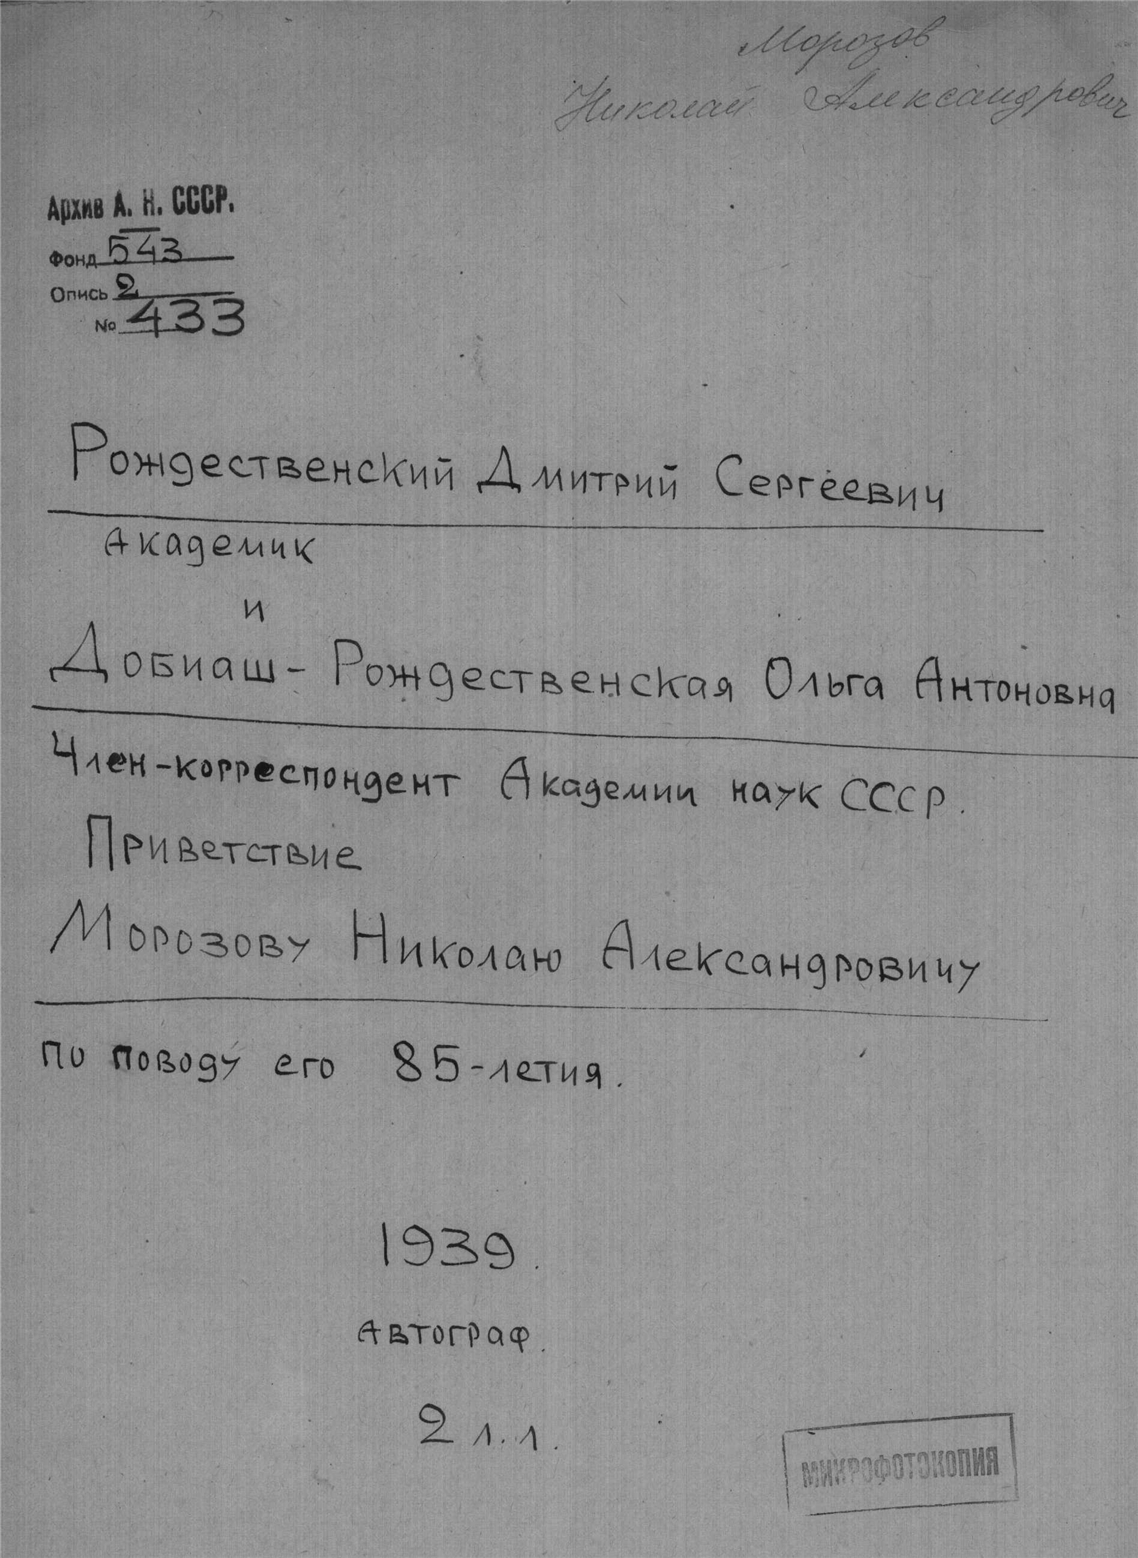 Морозов
Николай Александрович
Архив А. Н. СССР.
Фонд 543
Опись 2
№ 433
Рождественский Дмитрий Сергеевич
Академик
и
Добиаш-Рождественская Ольга Антоновна
Член-корреспондент Академии наук СССР.
Приветствие
Морозову Николаю Александровичу
по поводу его 85-летия.
1939.
Автограф.
2 л.л.
МИКРОФОТОКОПИЯ